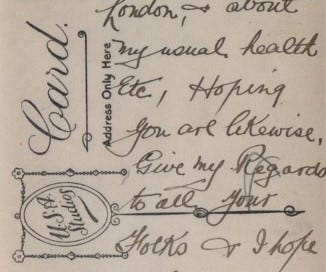 London, & about
my usual health
Etc, Hoping
you are likewise,
Give my Regards
to all your
Folks & I hope
Card.
Address Only Here
U.S.A
Studios